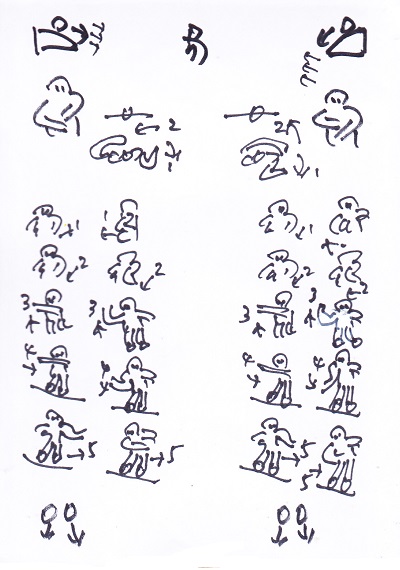 2 2
1 1
1 1 1
2 2 2 2
3 3 3 3
4 4 4 4
5 5 5 5